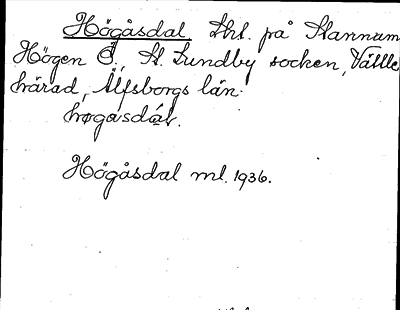 Högåsdal Lht. på Stannum
Högen Ö., St. Lundby socken, Vättle
härad, Älfsborgs län.
høgasdál.
Högåsdal ml. 1936.